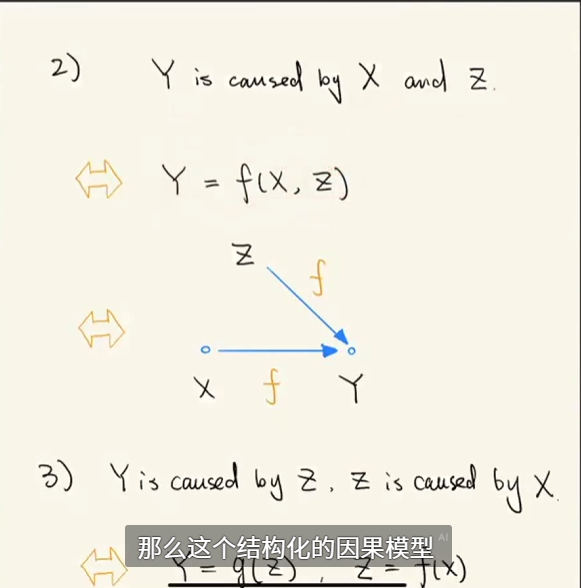 2) Y is caused by X and Z.
⇔ Y = f(X, Z)
Z
f
⇔
X f Y
3) Y is caused by Z, Z is caused by X.
那么这个结构化的因果模型 AI
⇔ Y = g(Z), Z = f(X)